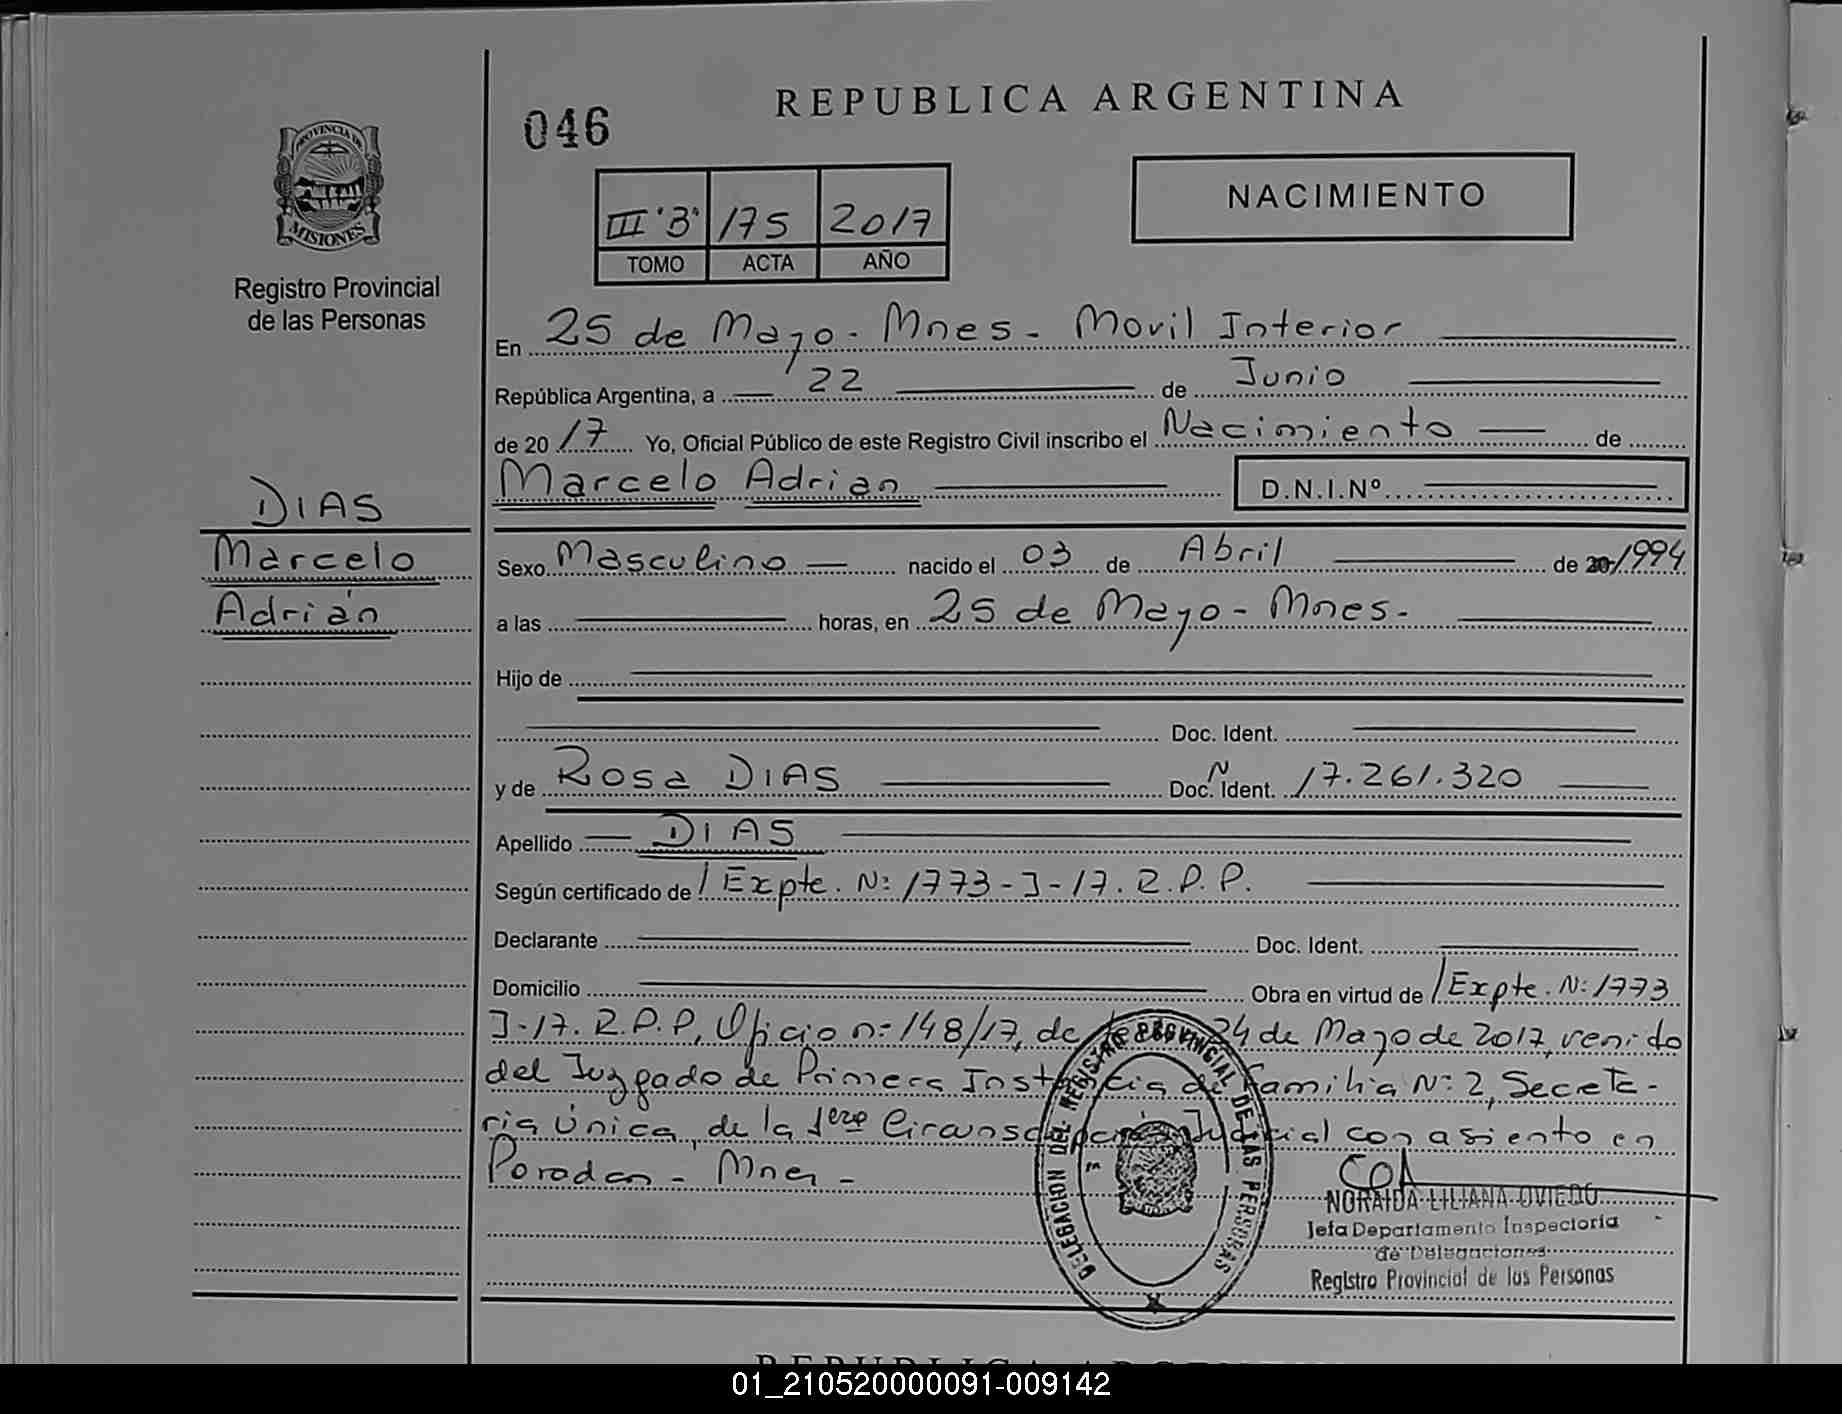 REPUBLICA ARGENTINA
046
NACIMIENTO
III "B" 175 2017
TOMO ACTA AÑO
PROVINCIA DE
MISIONES
Registro Provincial
de las Personas
En 25 de Mayo - Mnes - Movil Interior
República Argentina, a 22 de Junio
de 20 17 Yo, Oficial Público de este Registro Civil inscribo el Nacimiento de
Marcelo Adrian D.N.I.Nº
DIAS
Marcelo
Adrián
Sexo Masculino nacido el 03 de Abril de 20 1994
a las horas, en 25 de Mayo - Mnes.
Hijo de
Doc. Ident.
y de Rosa DIAS Doc. N Ident. 17.261.320
Apellido DIAS
Según certificado de / Expte. Nº 1773-J-17. R.P.P.
Declarante Doc. Ident.
Domicilio Obra en virtud de / Expte. Nº 1773
J-17. R.P.P, Oficio nº 148/17, de 24 de Mayo de 2017, venido
del Juzgado de Primera Instancia de Familia Nº 2, Secreta-
ria Única, de la 1era Circunscripción Judicial con asiento en
Posadas - Mnes -
DELEGACION DEL REGISTRO PROVINCIAL DE LAS PERSONAS
NORAIDA LILIANA OVIEDO
Jefa Departamento Inspectoria
de Delegaciones
Registro Provincial de las Personas
REPUBLICA ARGENTINA
01_210520000091-009142